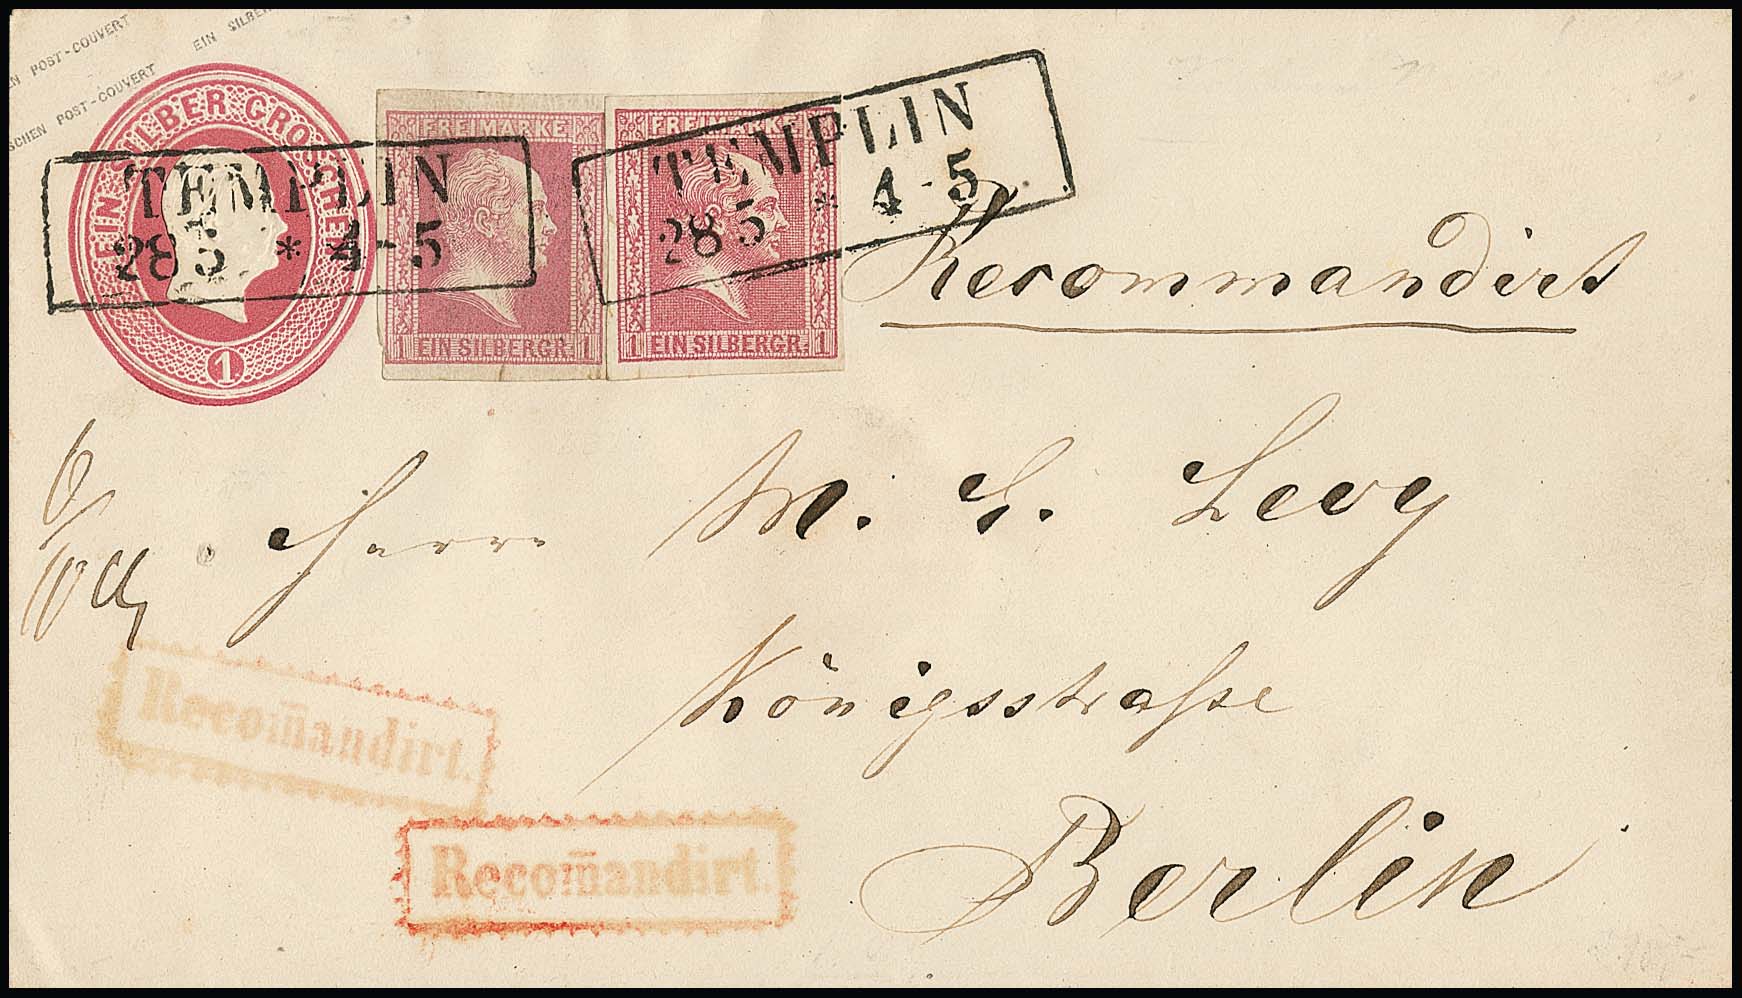 EN POST-COUVERT
EIN SILBER
SCHEN POST-COUVERT
EIN SILBER GROSCHEN
1
TEMPLIN
28 5 * 4-5
FREIMARKE
1 EIN SILBERGR. 1
FREIMARKE
1 EIN SILBERGR. 1
TEMPLIN
28 5 * 4-5
Recommandirt
Herrn M. G. Levy
Königsstraße
Berlin
Recom̄andirt.
Recom̄andirt.